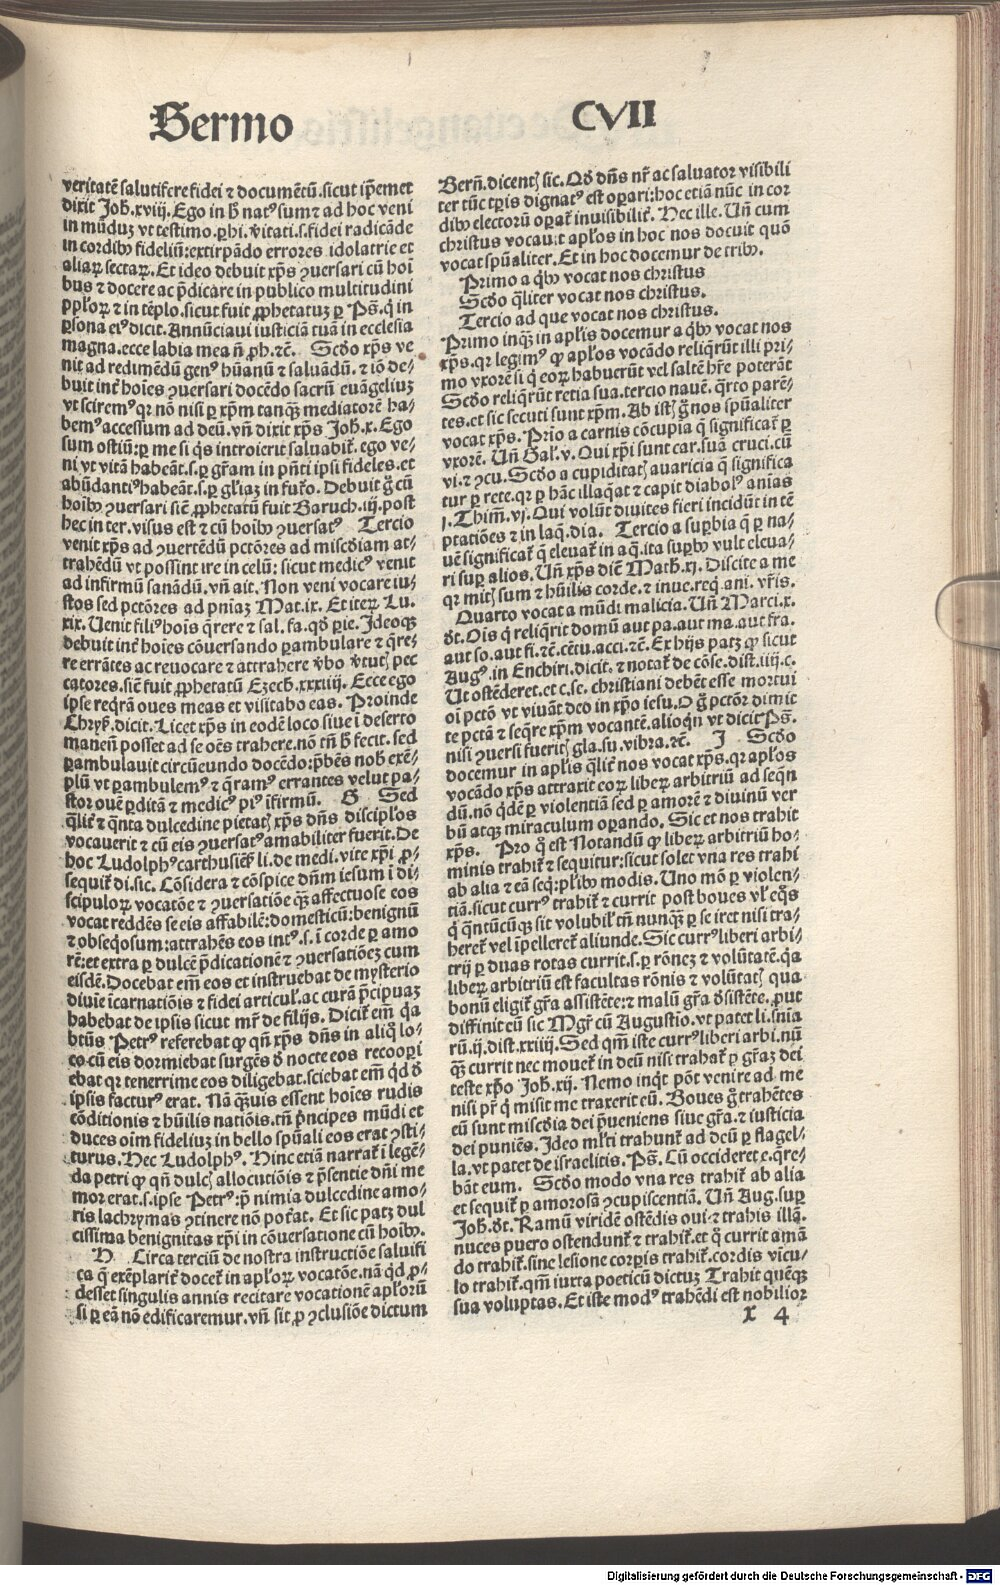 Sermo
CVII
veritatē salutifere fidei ⁊ documētū. sicut ip̄emet
dixit Joh̄.xviij. Ego in h̄ nat⁹ sum ⁊ ad hoc veni
in mūduʒ vt testimo. ꝑhi. v̄itati. s. fidei radicāde
in cordibꝰ fideliū: extirpādo errores idolatrie et
aliaꝝ sectaꝝ. Et ideo debuit xp̄s ꝯuersari cū hoī
bus ⁊ docere ac p̄dicare in publico multitudini
pp̄loꝝ ⁊ in tēplo. sicut fuit ꝓphetatuʒ ꝑ Ps̄. q̇ in
ꝑsona ei⁹ dicit. Annūciaui iusticiā tuā in ecclesia
magna. ecce labia mea ñ ꝓh. ⁊c̄. Scd̄o xp̄s ve
nit ad redimēdū gen⁹ hūanū ⁊ saluādū. ⁊ iō de-
buit int̄ hoīes ꝯuersari docēdo sacrū euāgeliuʒ
vt scirem⁹ qꝛ nō nisi ꝑ xp̄m tanꝙ̄ mediatorē ha-
bem⁹ accessum ad deū. vn̄ dixit xp̄s Joh̄.x. Ego
sum ostiū: ꝑ me si q̇s introierit saluabit̄. ego ve-
ni vt vitā habeāt. s. ꝑ gr̄am in pn̄ti ipsi fideles. et
abūdanti⁹ habeāt. s. ꝑ gl̄iaʒ in fut̄o. Debuit ḡ cū
hoībꝰ ꝯuersari sic̄ ꝓphetatū fuit Baruch.iij. post
hec in ter. visus est ⁊ cū hoībꝰ ꝯuersat⁹ Tercio
venit xp̄s ad ꝯuertēdū pctōres ad miscd̄iam at-
trahēdū vt possint ire in celū: sicut medic⁹ venit
ad infirmū sanādū. vn̄ ait. Non veni vocare iu-
stos sed pctōres ad pn̄iaʒ Mat.ix. Et iteꝝ Lu.
xix. Uenit fili⁹ hoīs q̄rere ⁊ sal. fa. qd̄ ꝑie. Ideoqʒ
debuit int̄ hoīes cōuersando ꝑambulare ⁊ q̄re-
re errātes ac reuocare ⁊ attrahere v̄bo v̄tutꝭ pec
catores. sic̄ fuit ꝓphetatū Ezech̄.xxxiiij. Ecce ego
ip̄e reqrā oues meas et visitabo eas. Proinde
Chrys̄. dicit. Licet xp̄s in eodē loco siue ī deserto
manen̄ posset ad se oēs trahere. nō tn̄ h̄ fecit. sed
ꝑambulauit circūeundo docēdo: p̄bēs nob̄ exē-
plū vt ꝑambulem⁹ ⁊ q̄ram⁹ errantes velut pa-
stor ouē ꝑditā ⁊ medic⁹ pi⁹ īfirmū. G Sed
q̄lit̄ ⁊ q̄nta dulcedine pietatꝭ xp̄s dn̄s discip̄los
vocauerit ⁊ cū eis ꝯuersat⁹ amabiliter fuerit. De
hoc Ludolph⁹ carthusiēs̄ li. de medi. vite xp̄i ꝓ-
sequit̄ di. sic. Cōsidera ⁊ cōspice dn̄m iesum ī di-
scipuloꝝ vocatōe ⁊ ꝯuersatiōe ꝙ̄ affectuose eos
vocat reddēs se eis affabilē: domesticū: benignū
⁊ obseq̇osum: attrahēs eos int⁹. s. ī corde ꝑ amo
rē: et extra ꝑ dulcē p̄dicationē ⁊ ꝯuersatiōeʒ cum
eisdē. Docebat em̄ eos et instruebat de mysterio
diuīe īcarnatiōis ⁊ fidei articul̄. ac curā p̄cipuaʒ
habebat de ipsis sicut mr̄ de filijs. Dicit̄ em̄ q̇a
btūs Petr⁹ referebat ꝙ qn̄ xp̄s dn̄s in aliq̇ lo-
co cū eis dormiebat surgēs d̄ nocte eos recoopi
ebat qꝛ tenerrime eos diligebat. sciebat em̄ qd̄ d̄
ipsis factur⁹ erat. Nā ꝙ̄uis essent hoīes rudis
cōditionis ⁊ hūilis natiōis. tn̄ p̄ncipes mūdi et
duces oīm fideliuʒ in bello spūali eos erat ꝯsti-
turus. Hec Ludolph⁹. Hinc etiā narrat̄ ī legē-
da petri ꝙ qn̄ dulcꝭ allocutiōis ⁊ p̄sentie dn̄i me
mor erat. s. ipse Petr⁹: p̄ nimia dulcedine amo-
ris lachrymas ꝯtinere nō pot̄at. Et sic patʒ dul
cissima benignitas xp̄i in cōuersatione cū hoībꝰ.
H Circa terciū de nostra instructiōe saluifi
ca q̄ exēplarit̄ docet̄ in apl̄oꝝ vocatōe. nā qd̄ ꝓ-
desset singulis annis recitare vocationē apl̄orū
si ꝑ eā nō edificaremur. vn̄ sit ꝓ ꝯclusiōe dictum
Bern̄. dicentꝭ sic. Qd̄ dn̄s nr̄ ac saluator visibili
ter tūc tꝑis dignat⁹ est oꝑari: hoc etiā nūc in cor
dibꝰ electorū oꝑat̄ inuisibilit̄. Hec ille. Un̄ cum
christus vocauit apl̄os in hoc nos docuit quō
vocat spūaliter. Et in hoc docemur de tribꝰ.
Primo a q̇bꝰ vocat nos christus
Scd̄o q̄liter vocat nos christus.
Tercio ad que vocat nos christus.
Primo inqʒ in apl̄is docemur a q̇bꝰ vocat nos
xp̄s. qꝛ legim⁹ ꝙ apl̄os vocādo reliq̄rūt illi pri-
mo vxorē si q̇ eoꝝ habuerūt vel saltē hr̄e poterāt
Scd̄o reliq̄rūt retia sua. tercio nauē. q̄rto parē-
tes. et sic secuti sunt xp̄m. Ab istꝭ ḡ nos spūaliter
vocat xp̄s. Prio a carnis cōcupia q̄ significat̄ ꝑ
vxorē. Un̄ Gal̄.v. Qui xp̄i sunt car. suā cruci. cū
vi. ⁊ ꝯcu. Scd̄o a cupiditatꝭ auaricia q̄ significa
tur ꝑ rete. qꝛ ꝑ hāc illaq̄at ⁊ capit diabol⁹ anīas
j. Thim̄.vj. Qui volūt diuites fieri incidūt in tē
ptatiōes ⁊ in laq̄. dia. Tercio a suꝑbia q̄ ꝑ na-
uē significat̄ q̄ eleuat̄ in aq̄. ita suꝑbꝰ vult eleua-
ri suꝑ alios. Un̄ xp̄s dic̄ Math̄.xj. Discite a me
qꝛ mitꝭ sum ⁊ hūilis corde. ⁊ inue. req̄. ani. vr̄is.
Quarto vocat a mūdi malicia. Un̄ Marci.x.
d̄t. Oīs q̇ reliq̄rit domū aut pa. aut ma. aut fra.
aut so. aut fi. ⁊c̄. cētu. acci. ⁊c̄. Ex hijs patʒ ꝙ sicut
Aug⁹. in Enchiri. dicit. ⁊ notat̄ de cōse. dist.iiij. c.
Ut ostēderet. et c. sc. christiani debēt esse mortui
oī pctō vt viuāt deo in xp̄o iesu. O ḡ pctōr dimit
te pctā ⁊ seq̄re xp̄m vocantē. alioq̇n vt dicit Ps̄.
nisi ꝯuersi fueritꝭ gla. su. vibra. ⁊c̄. J Scd̄o
docemur in apl̄is q̄lit̄ nos vocat xp̄s. qꝛ apl̄os
vocādo xp̄s attraxit eoꝝ libeꝝ arbitriū ad seqn̄
dū. nō q̇dē ꝑ violentiā sed ꝑ amorē ⁊ diuinū ver
bū atqʒ miraculum oꝑando. Sic et nos trahit
xp̄s. Pro q̇ est Notandū ꝙ libeꝝ arbitriū ho-
minis trahit̄ ⁊ sequitur: sicut solet vna res trahi
ab alia ⁊ eā seq̇: pl̄ibꝰ modis. Uno mō ꝑ violen-
tiā. sicut curr⁹ trahit̄ ⁊ currit post boues vl̄ eq̄s
q̇ q̄ntūcūqʒ sit volubil̄ tn̄ nunꝙ̄ ꝑ se iret nisi tra-
heret̄ vel īpelleret̄ aliunde. Sic curr⁹ liberi arbi-
trij ꝑ duas rotas currit. s. ꝑ rōneʒ ⁊ volūtatē. q̇a
libeꝝ arbitriū est facultas rōnis ⁊ volūtatꝭ qua
bonū eligit̄ gr̄a assistēte: ⁊ malū gr̄a d̄sistēte. ꝓut
diffinit eū sic Mgr̄ cū Augustīo. vt patet li. snīa
rū. ij. dist.xxiiij. Sed qm̄ iste curr⁹ liberi arbi. nū
ꝙ̄ currit nec mouet̄ in deū nisi trahat̄ ꝑ gr̄aʒ dei
teste xp̄o Joh̄.xij. Nemo inq̇t pōt venire ad me
nisi pr̄ q̇ misit me traxerit eū. Boues ḡ trahētes
eū sunt miscd̄ia dei p̄ueniens siue gr̄a. ⁊ iusticia
dei puniēs. Ideo ml̄ti trahunt̄ ad deū ꝑ flagel-
la. vt patet de israelitis. Ps̄. Cū occideret e. q̄re-
bāt eum. Scd̄o modo vna res trahit̄ ab alia
et sequit̄ ꝑ amorosā ꝯcupiscentiā. Un̄ Aug. suꝑ
Joh̄. d̄t. Ramū viridē ostēdis oui. ⁊ trahis illā.
nuces puero ostendunt̄ ⁊ trahit̄. et q̇ currit amā
do trahit̄. sine lesione corꝑis trahit̄. cordis vīcu-
lo trahit̄. qm̄ iuxta poeticū dictuʒ Trahit quēqʒ
sua voluptas. Et iste mod⁹ trahēdi est nobilioꝛ
x 4
Digitalisierung gefördert durch die Deutsche Forschungsgemeinschaft - DFG